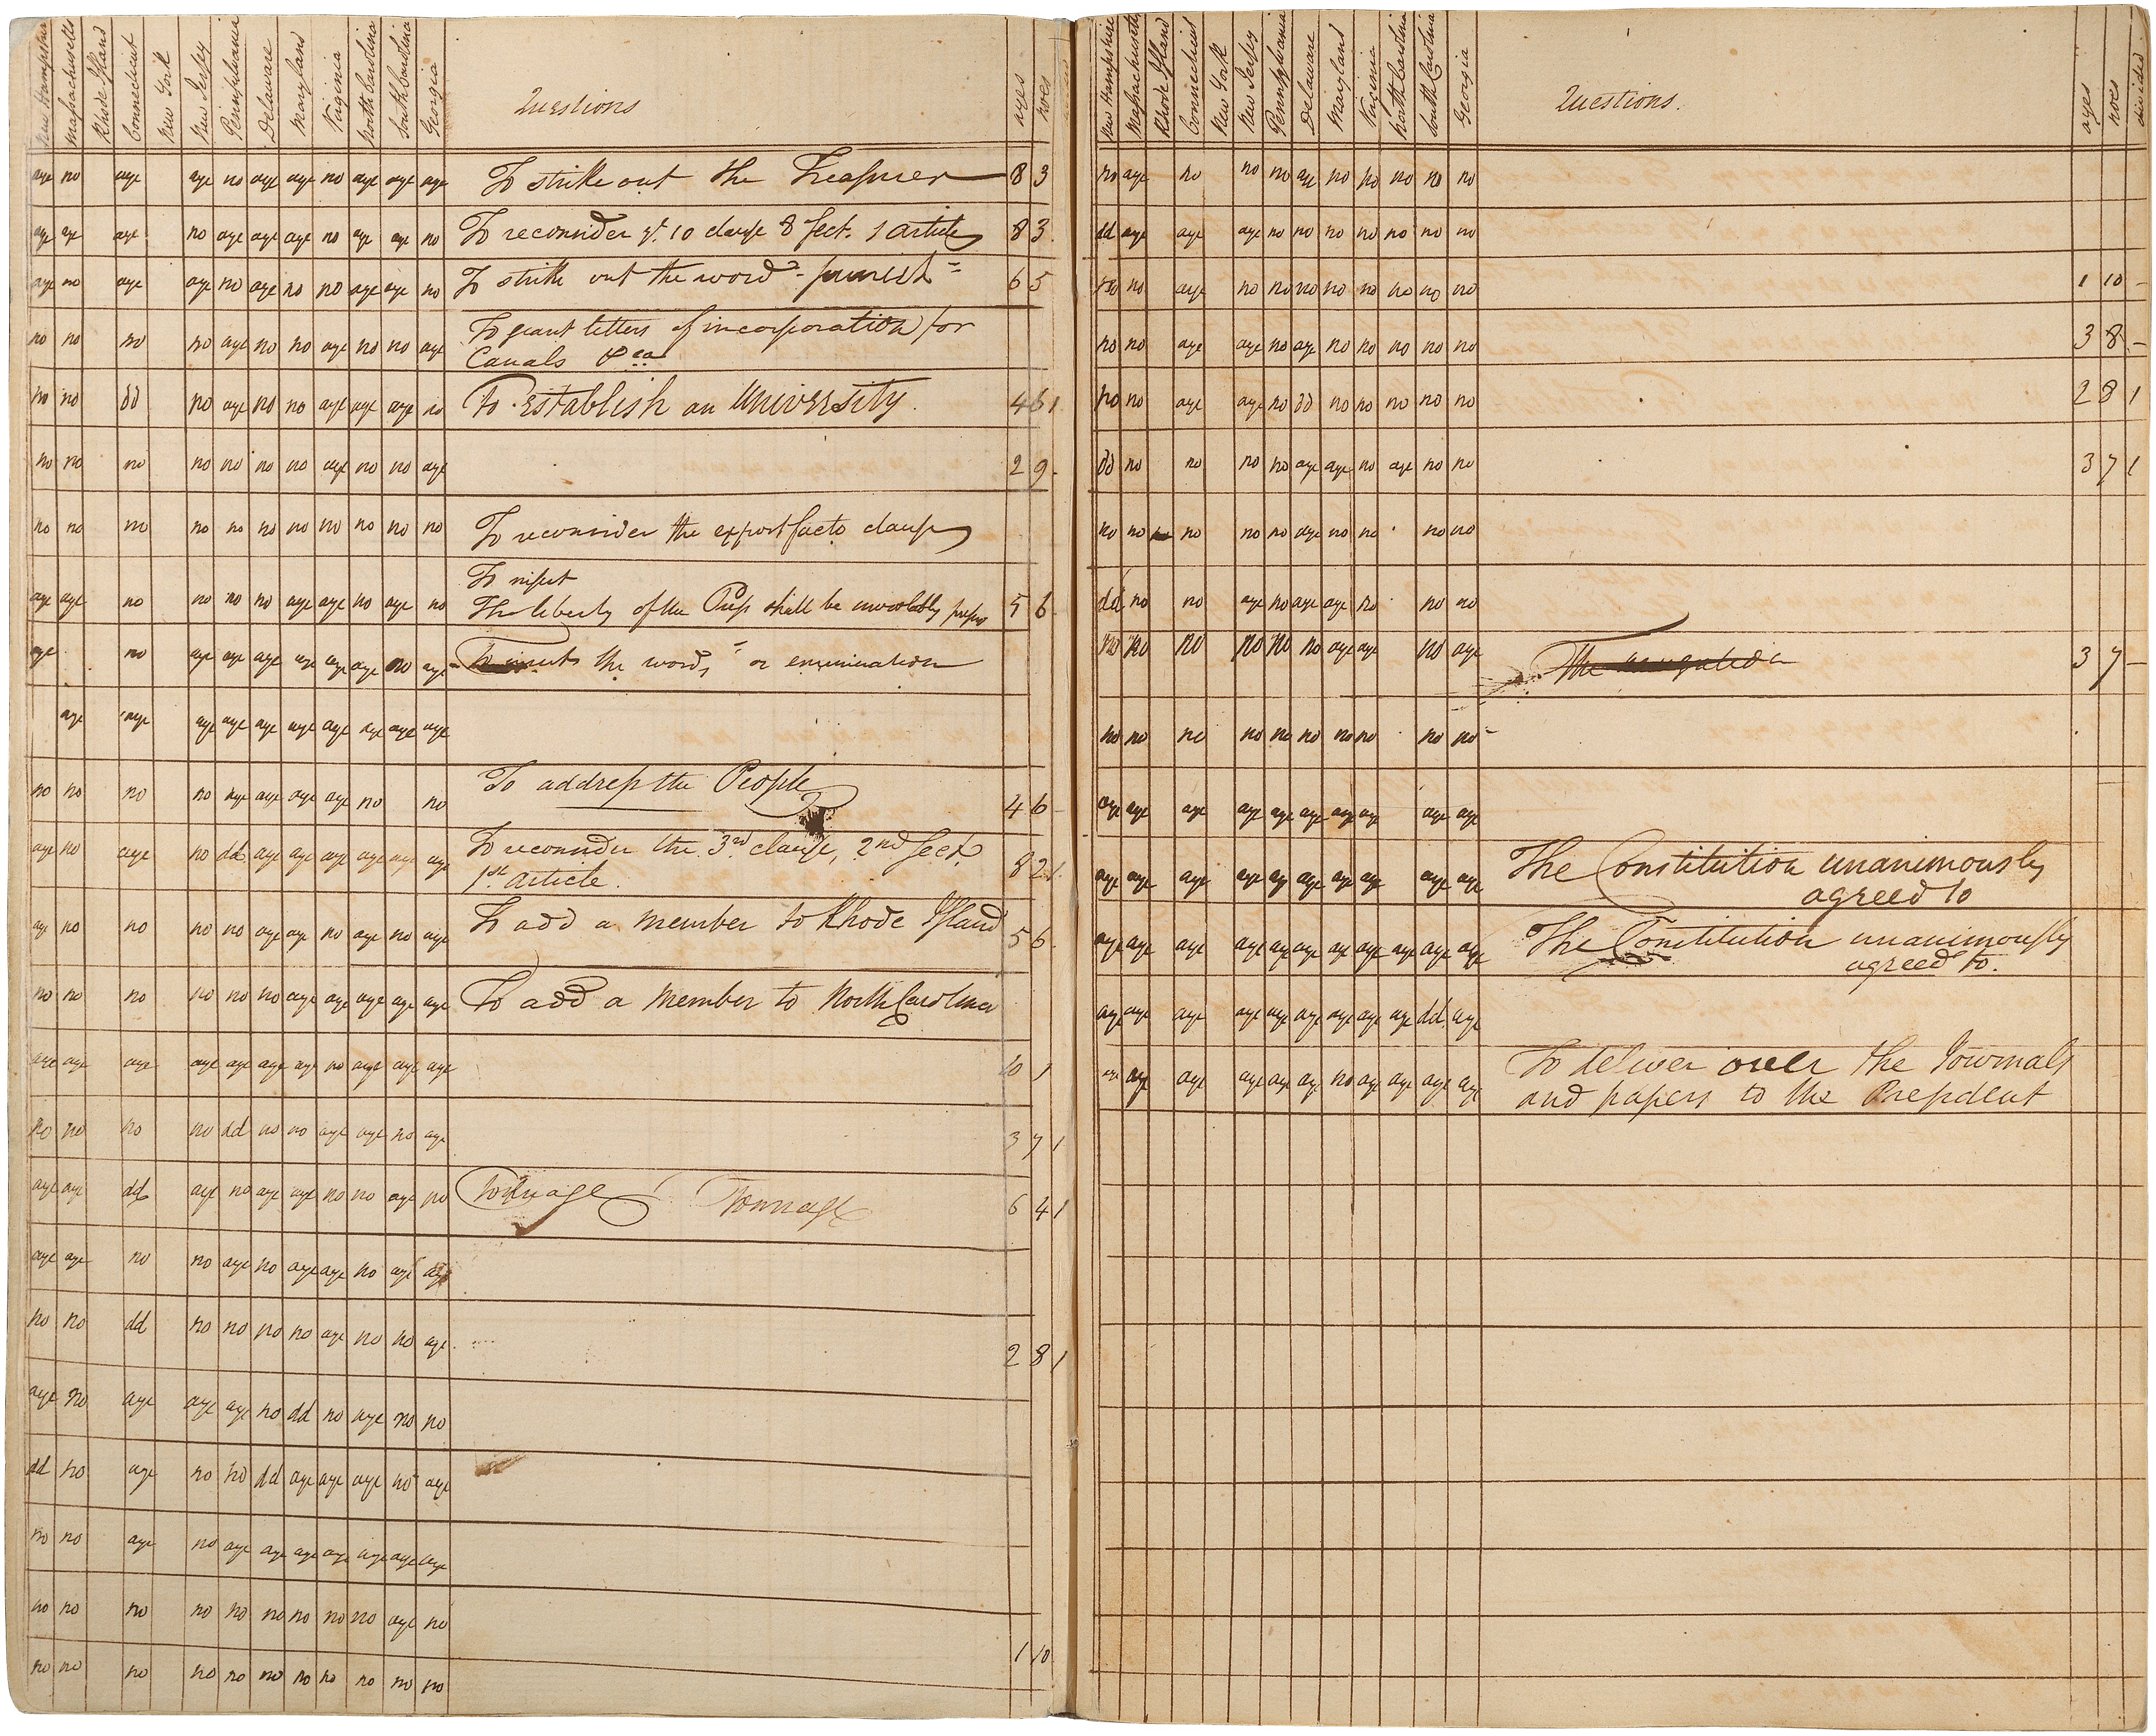 New Hampshire Massachusetts Rhode Island Connecticut New York New Jersey Pennsylvania Delaware Maryland Virginia North Carolina South Carolina Georgia Questions ayes noes
aye no aye aye no aye aye no aye aye aye To strike out the Treasurer 8 3
aye aye aye no aye aye aye no aye aye no To reconsider ye. 10 clause 8 sect. 1 article 8 3
aye no aye aye no aye no no aye aye no To strike out the word "punish" 6 5
no no no no aye no no aye no no aye To grant letters of incorporation for
Canals &ca
no no dd no aye no no aye aye aye no To establish an University. 4 6 1
no no no no no no no aye no no aye 2 9
no no no no no no no no no no no To reconsider the expost facto clause
To insert
aye aye no no no no aye aye no aye no The liberty of the Press shall be inviolably 5 6
aye no aye aye aye aye aye aye no aye the words " or enumeration
aye aye aye aye aye aye aye aye aye aye
no no no no aye aye aye aye no no To address the People 4 6
aye no aye no dd aye aye aye aye aye aye To reconsider the 3rd clause, 2nd sect. 8 2 1
1st article.
aye no no no no aye aye no aye no aye To add a member to Rhode Island 5 6
no no no no no no aye aye aye aye aye To add a member to North Carolina
aye aye aye aye aye aye aye no aye aye aye 10 1
no no no no dd no no aye aye no aye 3 7 1
aye aye dd aye no aye aye no no aye no Tonnage Tonnage 6 4 1
aye aye no no aye no aye aye no aye aye
no no dd no no no no aye no no aye 2 8 1
aye no aye aye aye no dd no aye no no
dd no aye no no dd aye aye aye no aye
no no aye no aye aye aye aye aye aye aye
no no no no no no no no no aye no 1 10
no no no no no no no no no no no
New Hampshire Massachusetts Rhode Island Connecticut New York New Jersey Pennsylvania Delaware Maryland Virginia North Carolina South Carolina Georgia Questions. ayes noes divided
no aye no no no aye no no no no no
dd aye aye aye no no no no no no no
no no aye no no no no no no no no 1 10 –
no no aye aye no aye no no no no no 3 8 –
no no aye aye no dd no no no no no 2 8 1
dd no no no no aye aye no aye no no 3 7 1
no no no no no aye no no no no
dd no no aye no aye aye no no no
no no no no no no aye aye no aye The 3 7 –
no no no no no no no no no no
aye aye aye aye aye aye aye aye aye aye
aye aye aye aye aye aye aye aye aye aye The Constitution unanimously
agreed to
aye aye aye aye aye aye aye aye aye aye aye The Constitution unanimously
agreed to.
aye aye aye aye aye aye aye aye aye dd aye
aye aye aye aye aye aye no aye aye aye aye To deliver over the Journals
and papers to the President